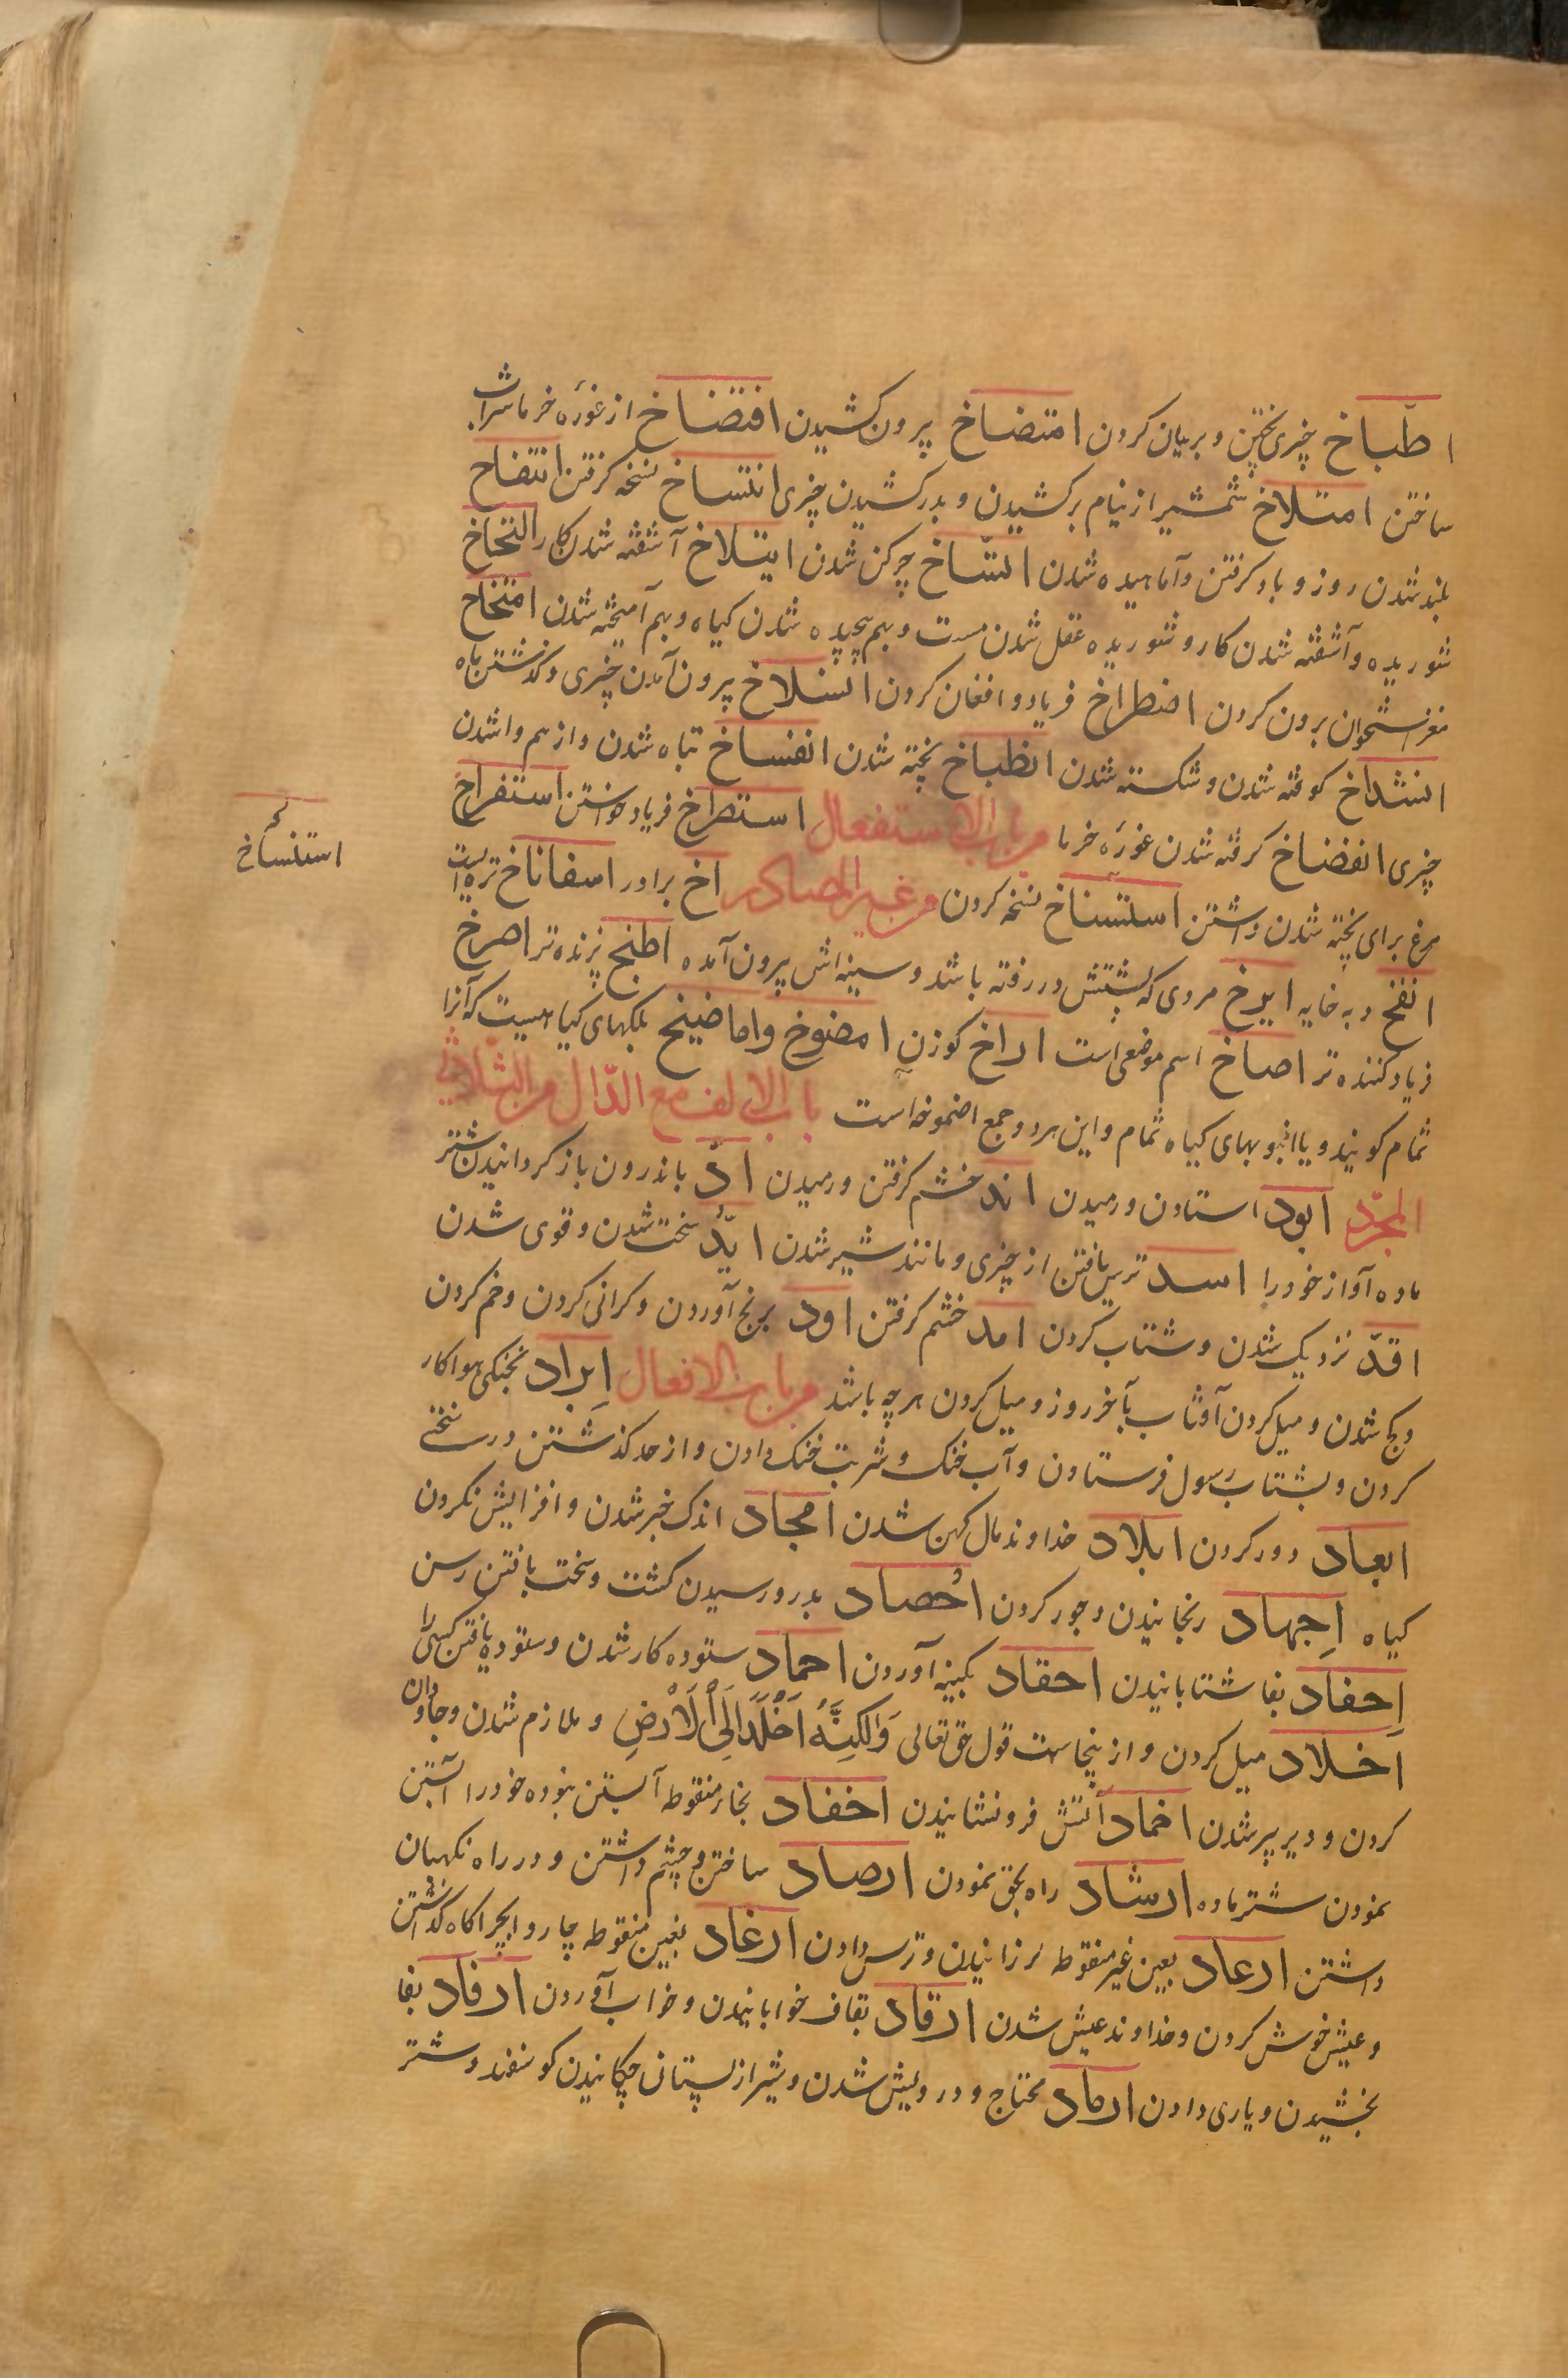 اطّباخ چیزی پختن و بریان کردن امتضاخ بیرون کشیدن افتضاخ از غورٔه خرما شراب
ساختن امتلاخ شمشیر از نیام برکشیدن و بدر کشیدن چیزی انتساخ نسخه کرفتن انتفاخ
بلند شدن روز و باد کرفتن و آماهیده شدن اتّساخ چرکن شدن ایتلاخ آشفته شدن کار التخاخ
شوریده و آشفته شدن کار و شوریده عقل شدن مست و بهم پیچیده شدن کیاه و بهم آمیخته شدن امتخاخ
مغز استخوان برون کردن اضطراخ فریاد و افغان کردن انسلاخ بیرون آمدن چیزی و کذشتن ماه
انشداخ کوفته شدن و شکسته شدن انطباخ پخته شدن انفساخ تباه شدن و از هم وا شدن
چیزی انفضاخ کرفته شدن غورٔه خرما من باب الاستفعال استصراخ فریاد خواستن استفراخ
مرغ برای پخته شدن داشتن استنساخ نسخه کردن من غیر المصادر اخ برادر اسفاناخ تره ایست
انفخ دبه خایه ابزخ مردی که پشتش در رفته باشد و سینه اش بیرون آمده اطبخ پزنده تر اصرخ
فریاد کننده تر اصاخ اسم موضعی است اراخ کوزن امضوخ و اماضیخ بلکهای کیاهیست که آنرا
ثمام کویند و یا انبوبهای کیاه ثمام و این هر دو جمع امضوخه است باب الالف مع الدّال من الثلاثی
المجرّد ابود استادن و رمیدن اند خشم کرفتن و رمیدن ادّ باندرون باز کردانیدن شتر
ماده آواز خود را اسد ترس یافتن از چیزی و مانند شیر شدن ایدّ سخت شدن و قوی شدن
افدّ نزدیک شدن و شتاب کردن امد خشم کرفتن اود برنج آوردن و کرانی کردن و خم کردن
و کج شدن و میل کردن آفتاب بآخر روز و میل کردن هر چه باشد من باب الافعال اِبراد بخنکی هوا کار
کردن و بشتاب رسول فرستادن و آب خنک و شربت خنک دادن و از حد کذشتن در سختی
ابعاد دور کردن ابلاد خداوند مال کهن شدن امجاد اندک خبر شدن و افزایش نکردن
کیاه اِجهاد رنجانیدن و جور کردن احصاد بدرو رسیدن کشت و سخت بافتن رسن
اِحفاد بفا شتابانیدن احقاد بکینه آوردن احماد ستوده کار شدن و ستوده یافتن کسی را
اَخلاد میل کردن و از ینجاست قول حق تعالی وَلٰکِنَّهُ اَخْلَدَ اِلَی الْاَرْضِ و ملازم شدن و جاودان
کردن و دیر پیر شدن اخماد آتش فرونشانیدن اخفاد بخار منقوطه آبستن نبوده خود را آبستن
نمودن شتر ماده ارشاد راه بحق نمودن ارصاد ساختن و چشم داشتن و در راه نکهبان
داشتن ارعاد بعین غیر منقوطه لرزانیدن و ترس دادن ارغاد بغین منقوطه چاروا بچراکاه کذاشتن
و عیش خوش کردن و خداوند عیش شدن ارقاد بقاف خوابانیدن و خواب آوردن ارفاد بفا
بخشیدن و یاری دادن ارماد محتاج و درویش شدن و شیر از پستان چکانیدن کوسفند و شتر
استنساخ